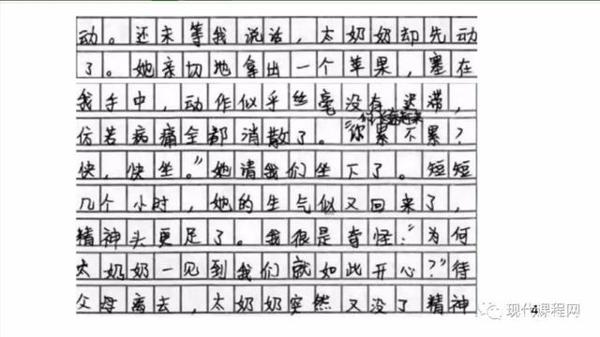 动。还未等我说话，太奶奶却先动
了。她亲切地拿出一个苹果，塞在
我手中，动作似乎丝毫没有迟滞，
仿若病痛全部消散了。“你累不累？
快，快坐。”她请我们坐下了。短短
几个小时，她的生气似又回来了，
精神头更足了。我很是奇怪：“为何
太奶奶一见到我们就如此开心？”待
父母离去，太奶奶突然又没了精神
4
现代课程网